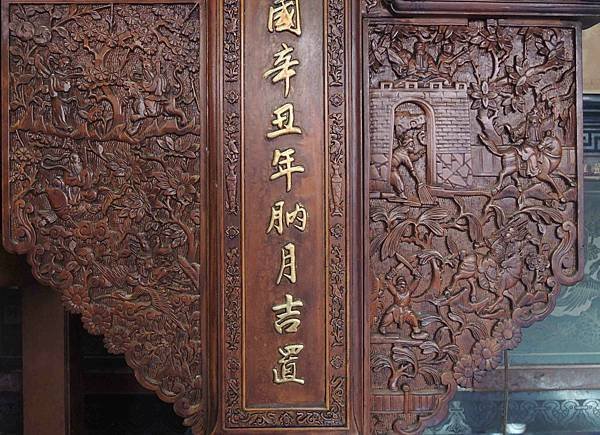 國辛丑年朒月吉置